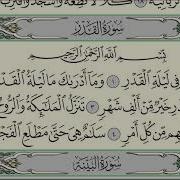 كَلَّا لَا تُطِعْهُ وَٱسْجُدْ وَٱقْتَرِب
سُورَةُ ٱلْقَدْرِ
بِسْمِ ٱللَّهِ ٱلرَّحْمَٰنِ ٱلرَّحِيمِ
فِي لَيْلَةِ ٱلْقَدْرِ ١ وَمَآ أَدْرَىٰكَ مَا لَيْلَةُ ٱلْقَد
رِ خَيْرٌ مِّنْ أَلْفِ شَهْرٍ ٣ تَنَزَّلُ ٱلْمَلَٰٓئِكَةُ وَٱلرُّو
هِم مِّن كُلِّ أَمْرٍ ٤ سَلَٰمٌ هِيَ حَتَّىٰ مَطْلَعِ ٱلْفَجْ
سُورَةُ ٱلْبَيِّنَةِ